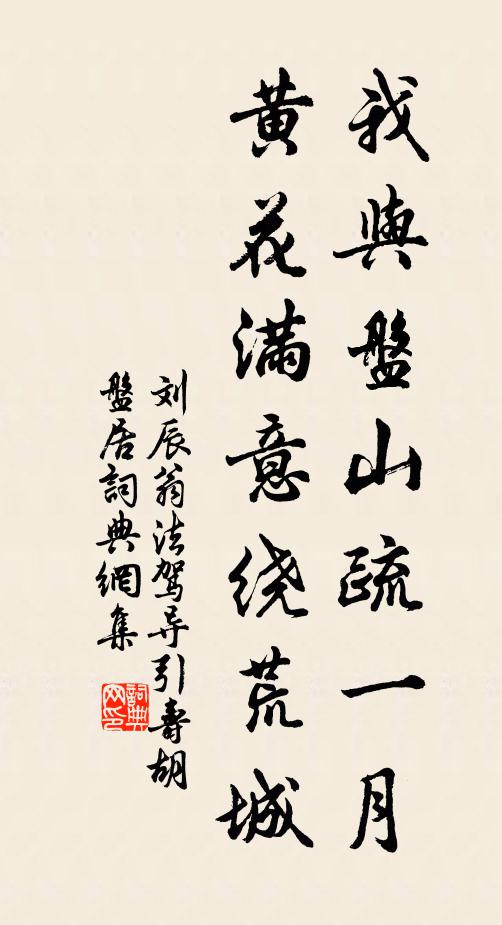 我與盤山疏一月
黄花满意绕荒城
刘辰翁法驾导引壽胡
盤居詞典網集
詞典
网印